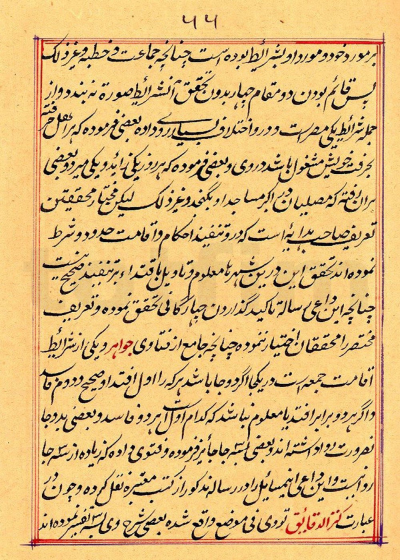 ۵۵
بر مورد خود و مورد او بشرائط بوده است چنانچه جماعت و خطبه و غیر ذلک
پس قائم بودن دو مقام چهار بدون تحقق آن شرائط صورة نه بندد و از
جمله شرائط یکی مصر است و درو اختلاف بسیاری رو داده بعضی فرموده که هر اهل حرفه
بحرفت خویش مشغول باشد در وی و بعضی فرموده که هر روز یکی زاید و یکی میرد و بعضی
بران رفته که مصلیان در اکبر مساجد او نگنجد و غیر ذلک لیکن مختار محققین
تعریف صاحب هدایه است که درو تنفیذ احکام و اقامت حدود و شرط
نموده اند تحقق این درین شهر نامعلوم و تاویل باقتداء بر تنفیذ صحیح نیست
چنانچه این داعی رساله تاکید گذاردن چهارگانی تحقق نموده و تعریف
مختصر را محققان اختیار ننموده چنانچه جامع از فتاوی جواهر و یکی از شرائط
اقامت جمعه است در یکی اگر دو جا باشد هر که را اول افتد او صحیح و دوم فاسد
و اگر هر دو برابر افتد یا معلوم نباشد که کدام اول است هر دو فاسد و بعضی بدو جا
بضرورت روا داشته اند و بعضی بسه جا جائز فرموده و فتوی داده که زیاده از سه جا
روا نیست و این داعی این مسائل را در رساله مذکور از کتب معتبره نقل کرده و چون در
عبارت کنز الدقایق تؤدی فی موضع واقع شده بعضی شرح وی بسه تفسیر نموده اند